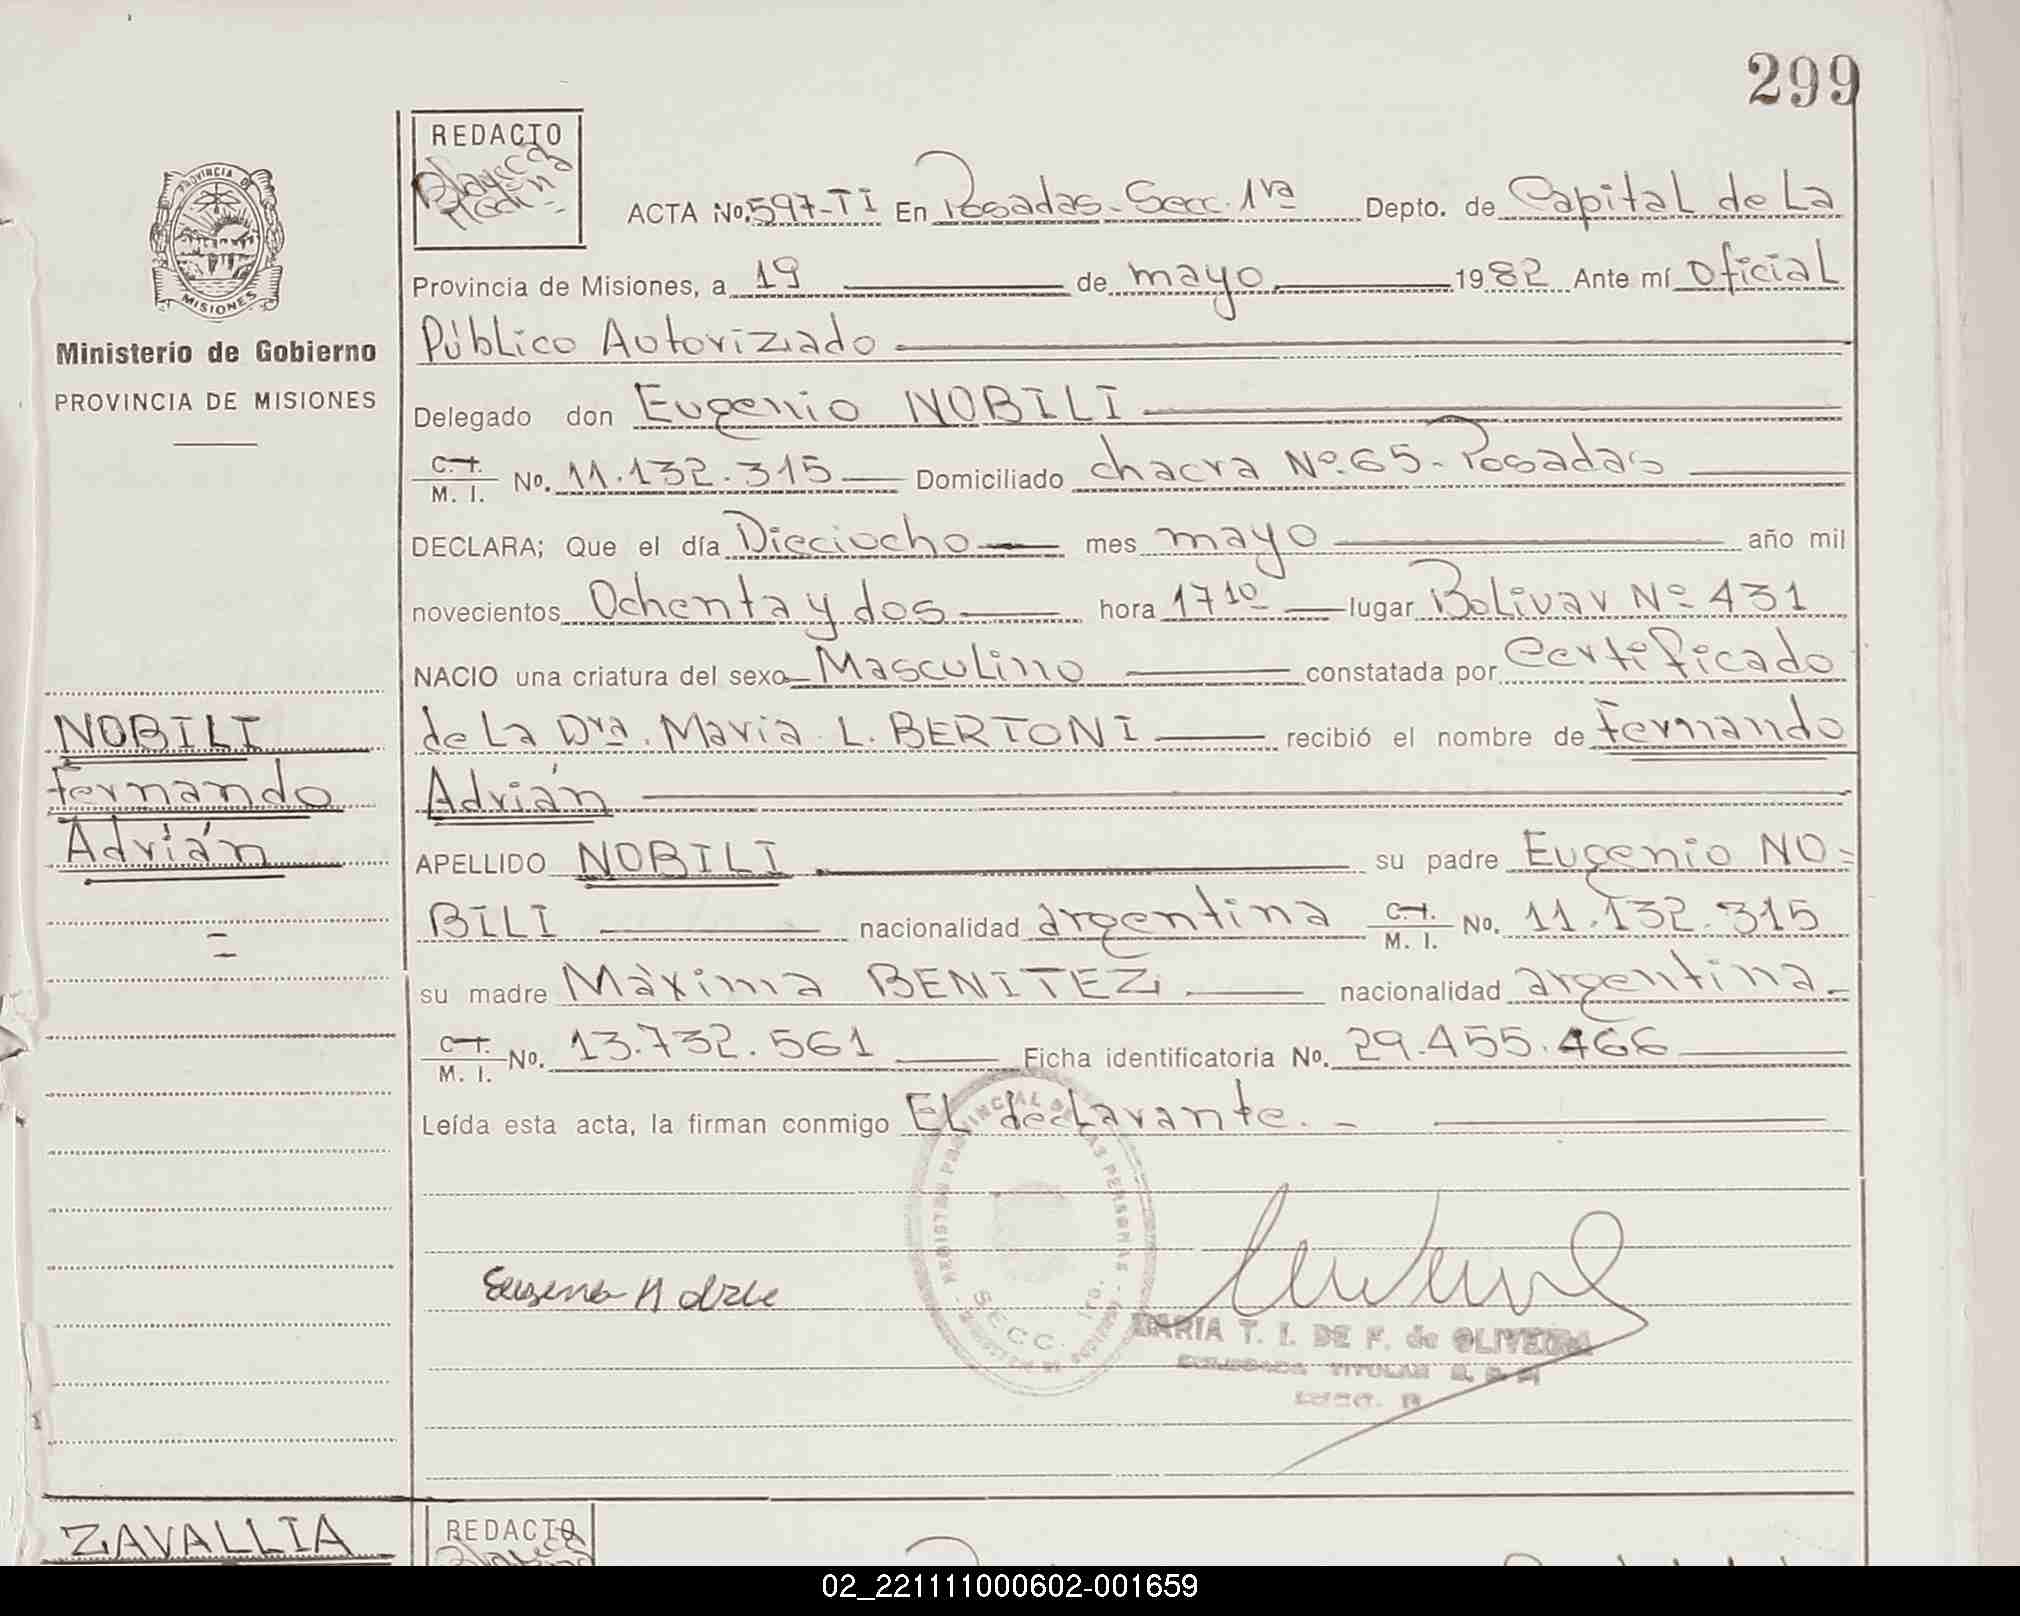 299
REDACTO
PROVINCIA DE
MISIONES
Ministerio de Gobierno
PROVINCIA DE MISIONES
ACTA No. 597-TI En Posadas-Secc. 1ra Depto. de Capital de La
Provincia de Misiones, a 19 de mayo 1982 Ante mí Oficial
Público Autorizado
Delegado don Eugenio NOBILI
C. I. M. I. No. 11.132.315 Domiciliado chacra Nº 65-Posadas
DECLARA; Que el día Dieciocho mes mayo año mil
novecientos Ochenta y dos hora 17 10 lugar Bolivar Nº 431
NACIO una criatura del sexo Masculino constatada por Certificado
de La Dra. Maria L. BERTONI recibió el nombre de Fernando
Adrián
NOBILI
Fernando
Adrián
APELLIDO NOBILI su padre Eugenio NO=
BILI nacionalidad argentina C. I. M. I. No. 11.132.315
su madre Máxima BENITEZ nacionalidad argentina
C. I. M. I. No. 13.732.561 Ficha identificatoria No. 29.455.466
Leída esta acta, la firman conmigo EL declarante.-
REGISTRO PROVINCIAL DE LAS PERSONAS
SECC. 1ra.
MARIA T. I. DE F. de OLIVEIRA
TITULAR
ZAVALLIA
REDACTO
02_221111000602-001659